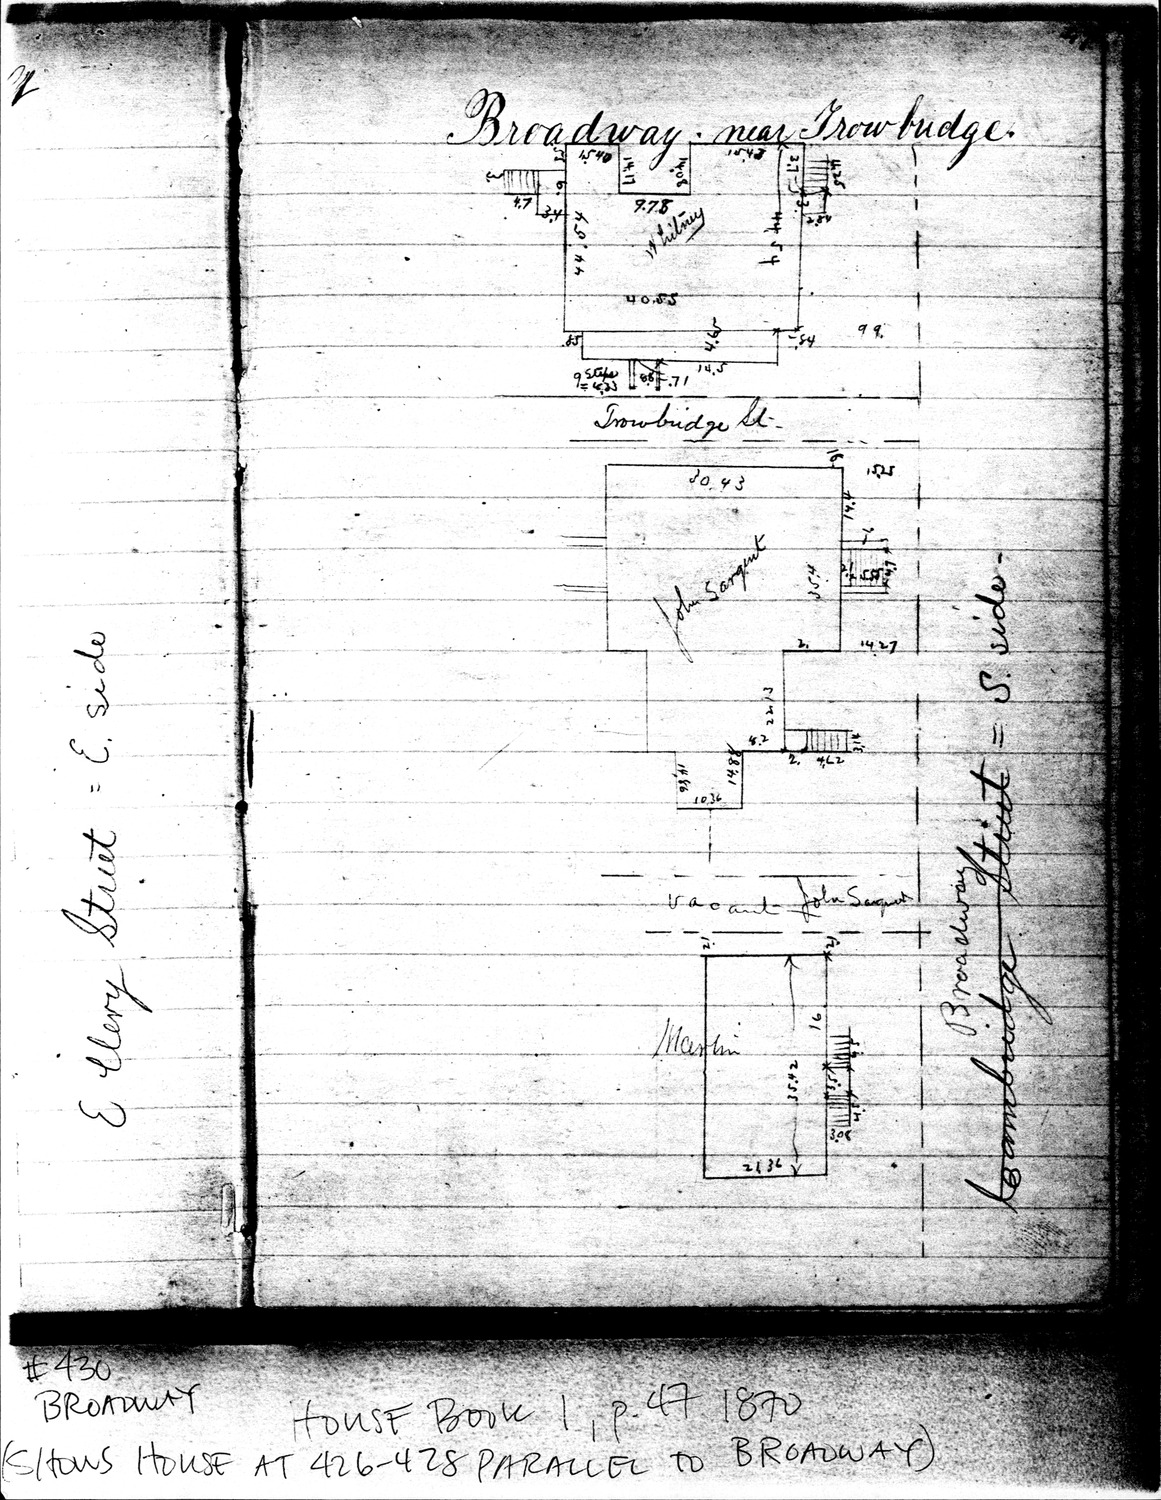 Broadway. near Trowbridge.
15.40
14.17
9.78
14.08
15.43
3.7
4.25
2.84
3.
4.7
3.4
6.
44.54
Whitney
44.54
40.55
.85
4.65
.84
99.
9 Steps
= 6.23
.88
.71
14.5
Trowbridge St.
30.43
.81
15.25
14.4
John Sargent
35.4
4.7
2.
14.27
22.13
8.2
2.
4.62
3.14
14.88
14.86
10.36
vacant John Sargent
21
21
16.
Martin
35.42
3.51
4.5
4.51
3.08
21.36
Ellery Street = E. side
Broadway
Cambridge Street = S. side.
#430
BROADWAY
HOUSE BOOK 1, p. 47 1870
(SHOWS HOUSE AT 426-428 PARALLEL TO BROADWAY)